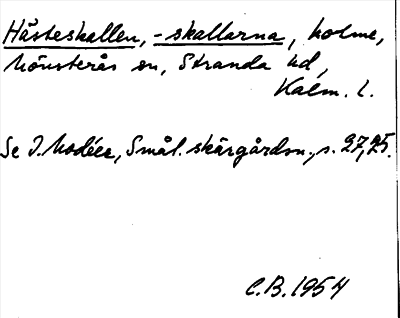 Hästeskallen, -skallarna, holme,
Mönsterås sn, Stranda hd,
Kalm. l.
Se I. Modéer, Smål. skärgårdsn., s. 27, 25.
C.B. 1954